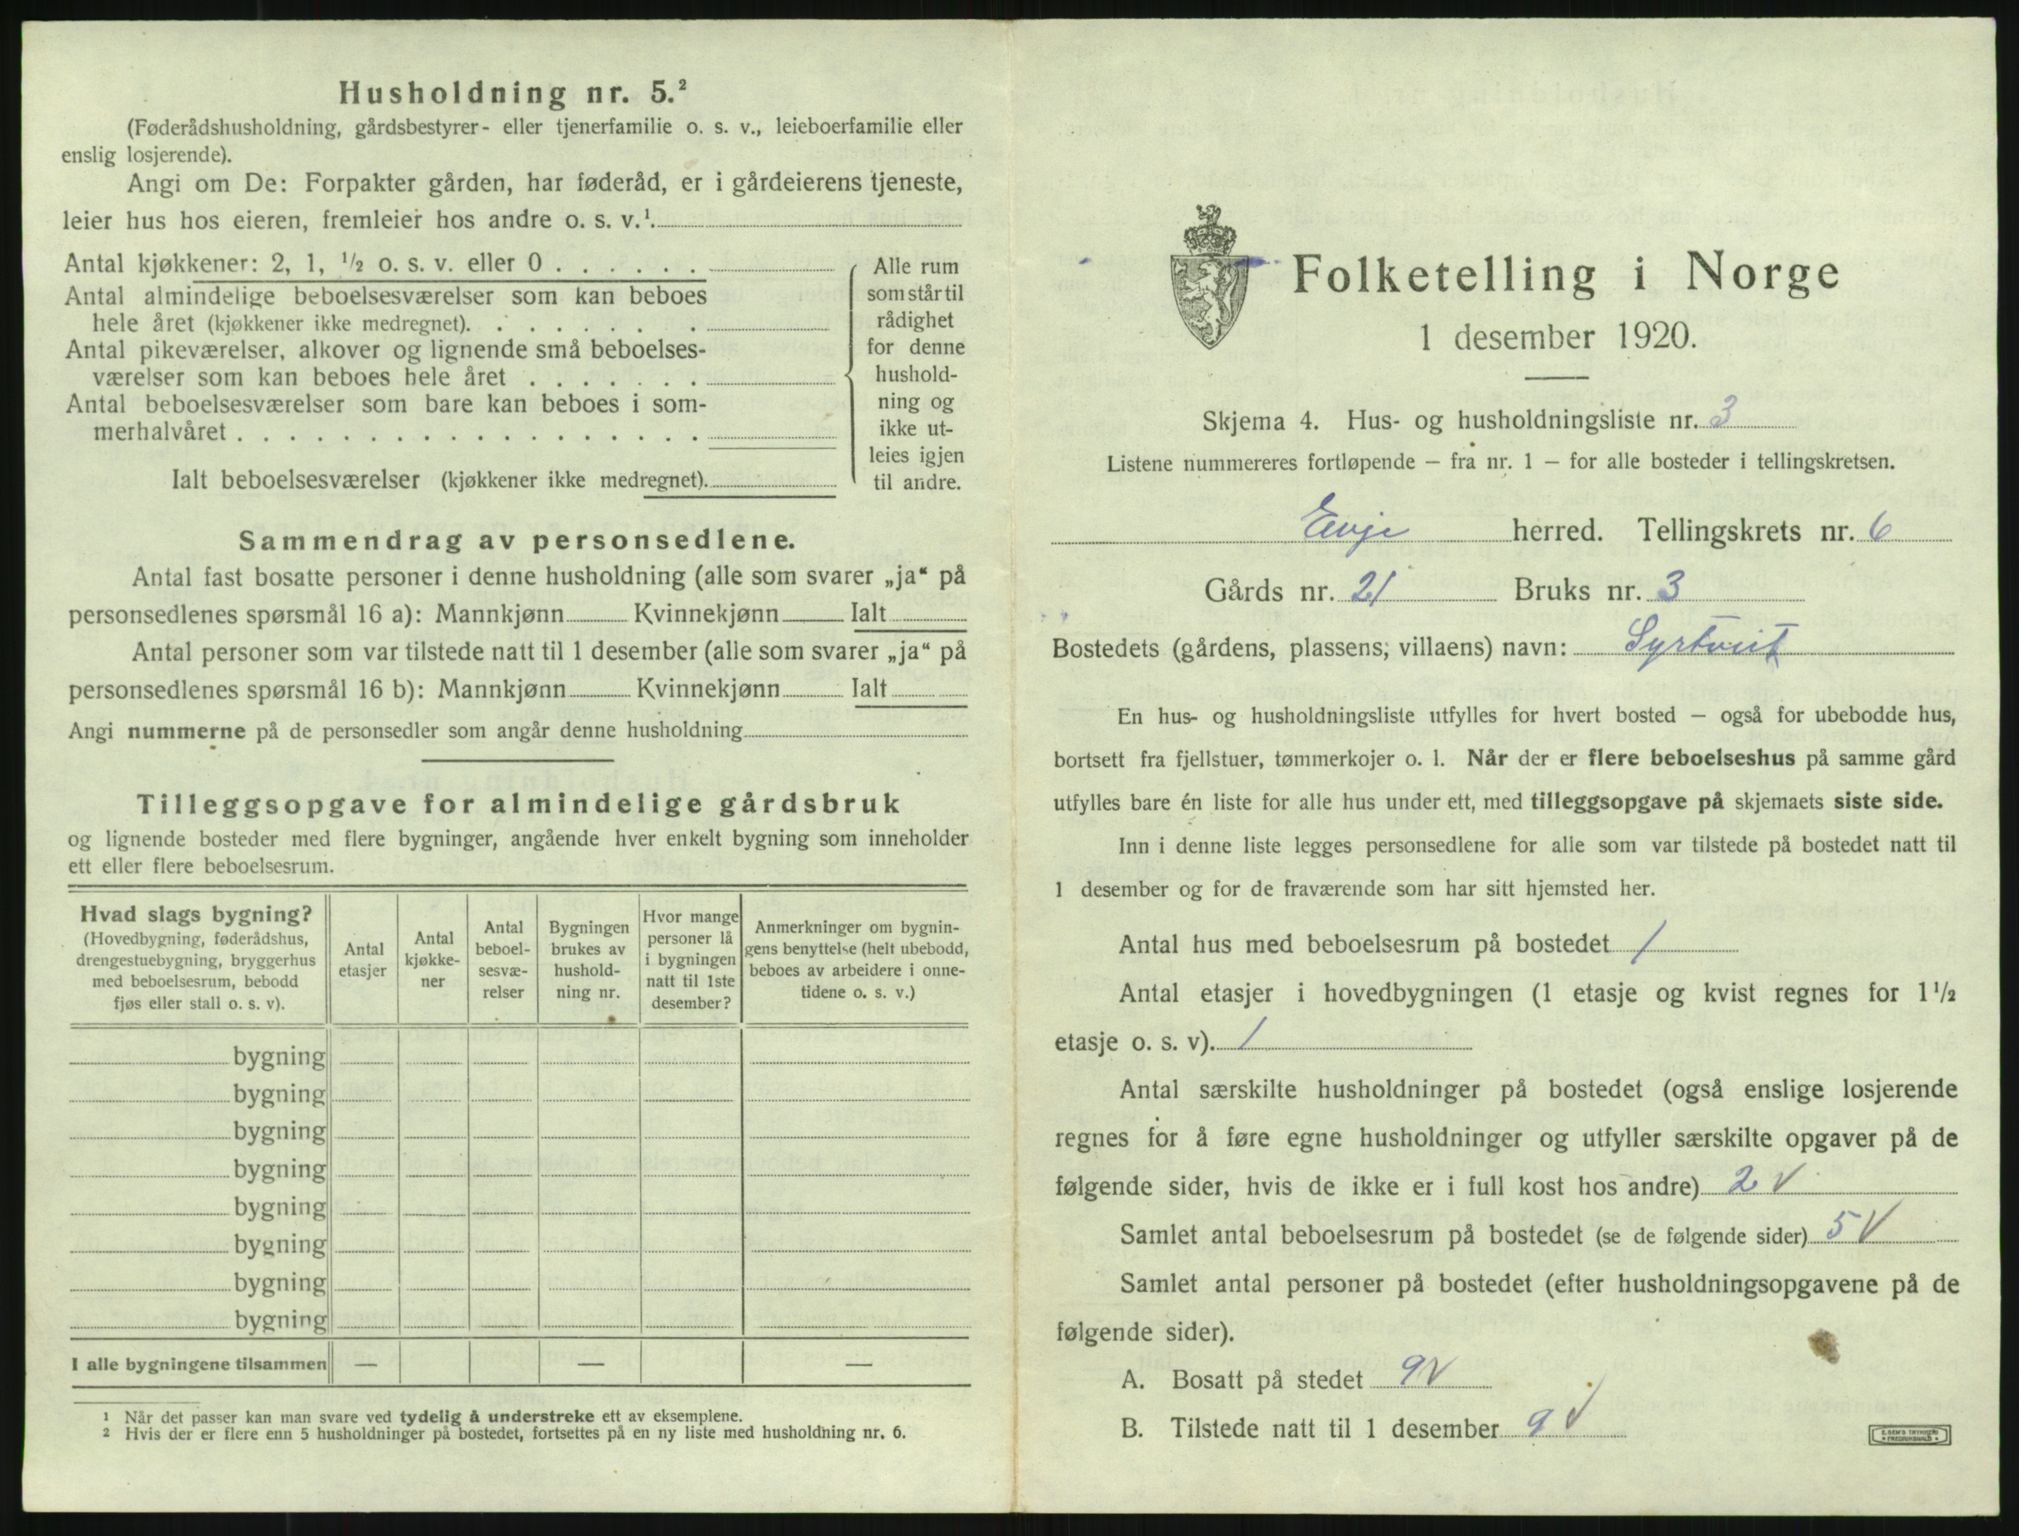 Husholdning nr. 5.²
(Føderådshusholdning, gårdsbestyrer- eller tjenerfamilie o. s. v., leieboerfamilie eller
enslig losjerende).
Angi om De: Forpakter gården, har føderåd, er i gårdeierens tjeneste,
leier hus hos eieren, fremleier hos andre o. s. v.¹.
Antal kjøkkener: 2, 1, ½ o. s. v. eller 0 . . . . . .
Antal almindelige beboelsesværelser som kan beboes
hele året (kjøkkener ikke medregnet). . . . . . . .
Antal pikeværelser, alkover og lignende små beboelses-
værelser som kan beboes hele året . . . . . . .
Antal beboelsesværelser som bare kan beboes i som-
merhalvåret . . . . . . . . . . . . . . . . . .
Ialt beboelsesværelser (kjøkkener ikke medregnet).
Alle rum
som står til
rådighet
for denne
hushold-
ning og
ikke ut-
leies igjen
til andre.
Sammendrag av personsedlene.
Antal fast bosatte personer i denne husholdning (alle som svarer „ja“ på
personsedlenes spørsmål 16 a): Mannkjønn Kvinnekjønn Ialt
Antal personer som var tilstede natt til 1 desember (alle som svarer „ja“ på
personsedlenes spørsmål 16 b): Mannkjønn Kvinnekjønn Ialt
Angi nummerne på de personsedler som angår denne husholdning
Tilleggsopgave for almindelige gårdsbruk
og lignende bosteder med flere bygninger, angående hver enkelt bygning som inneholder
ett eller flere beboelsesrum.
Hvad slags bygning?
(Hovedbygning, føderådshus,
drengestuebygning, bryggerhus
med beboelsesrum, bebodd
fjøs eller stall o. s. v).
Antal
etasjer
Antal
kjøkke-
ner
Antal
beboel-
sesvæ-
relser
Bygningen
brukes av
hushold-
ning nr.
Hvor mange
personer lå
i bygningen
natt til 1ste
desember?
Anmerkninger om bygnin-
gens benyttelse (helt ubebodd,
beboes av arbeidere i onne-
tidene o. s. v.)
bygning
bygning
bygning
bygning
bygning
bygning
bygning
bygning
I alle bygningene tilsammen — — —
¹ Når det passer kan man svare ved tydelig å understreke ett av eksemplene.
² Hvis der er flere enn 5 husholdninger på bostedet, fortsettes på en ny liste med husholdning nr. 6.
Folketelling i Norge
1 desember 1920.
Skjema 4. Hus- og husholdningsliste nr. 3
Listene nummereres fortløpende – fra nr. 1 – for alle bosteder i tellingskretsen.
Evje herred. Tellingskrets nr. 6
Gårds nr. 21 Bruks nr. 3
Bostedets (gårdens, plassens, villaens) navn: Syrtveit
En hus- og husholdningsliste utfylles for hvert bosted – også for ubebodde hus,
bortsett fra fjellstuer, tømmerkojer o. l. Når der er flere beboelseshus på samme gård
utfylles bare én liste for alle hus under ett, med tilleggsopgave på skjemaets siste side.
Inn i denne liste legges personsedlene for alle som var tilstede på bostedet natt til
1 desember og for de fraværende som har sitt hjemsted her.
Antal hus med beboelsesrum på bostedet 1
Antal etasjer i hovedbygningen (1 etasje og kvist regnes for 1½
etasje o. s. v). 1
Antal særskilte husholdninger på bostedet (også enslige losjerende
regnes for å føre egne husholdninger og utfyller særskilte opgaver på de
følgende sider, hvis de ikke er i full kost hos andre) 2 √
Samlet antal beboelsesrum på bostedet (se de følgende sider) 5 √
Samlet antal personer på bostedet (efter husholdningsopgavene på de
følgende sider).
A. Bosatt på stedet 9 √
B. Tilstede natt til 1 desember 9 √